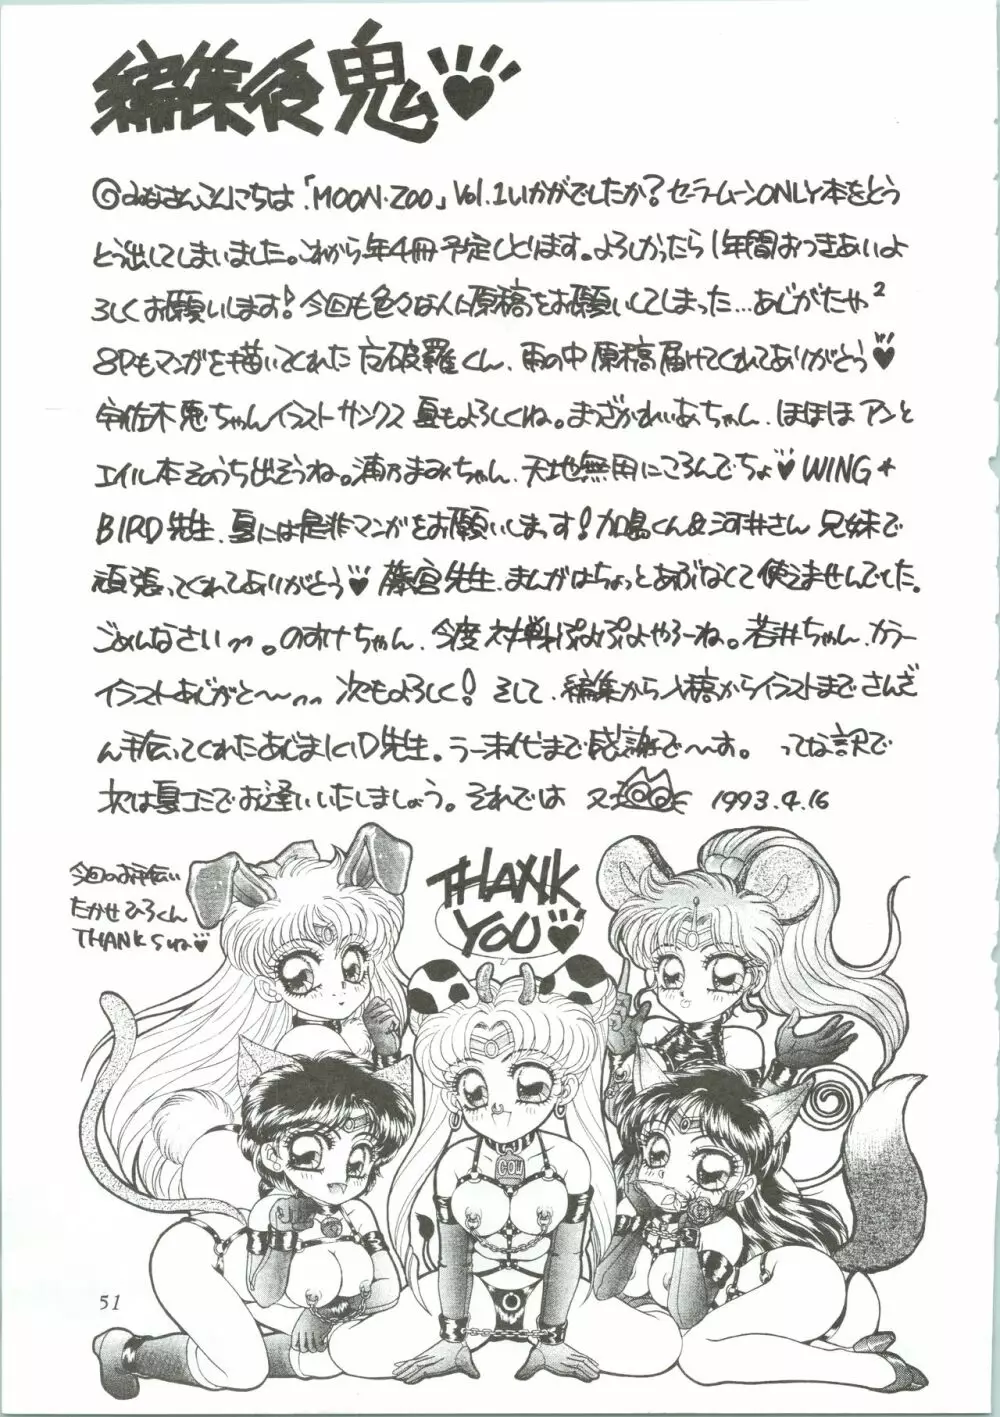 編集後鬼♥
◎みなさんこんにちは「MOON・ZOO」Vol.1いかがでしたか?セーラームーンONLY本をとう
とう出してしまいました。これから年4冊予定しとります。よろしかったら1年間おつきあいよ
ろしくお願いします!今回も色々な人に原稿をお願いしてしまった…ありがたや²
8Pもマンガを描いてくれた 破羅くん、雨の中原稿届けてくれてありがとう♥
宇佐木恵ちゃんイラストサンクス夏もよろしくね。まっざかれいあちゃん、ほほほアンと
エイル本そのうち出そうね。浦乃まみちゃん、天地無用にころんでちょ♥WING★
BIRD先生、夏には是非マンガをお願いしまっす!加島くん&河井さん兄妹で
頑張ってくれてありがとう♥藤宮先生、まんがはちょっとあぶなくて使えませんでした。
ごめんなさいっっ。のすけちゃん、今度対戦ぷよぷよやろーね。若井ちゃん、カラー
イラストありがと〜〜っっ 次もよろしく!そして、編集から入稿からイラストまでさんざ
ん手伝ってくれたあじまKID先生。うー末代まで感謝で〜す。ってな訳で
次は夏コミでお逢いいたしましょう。それでは 1993.4.16
今回のお手伝い
たかせひろくん
THANKSっっ♥
THANK
YOU♥
COW
51